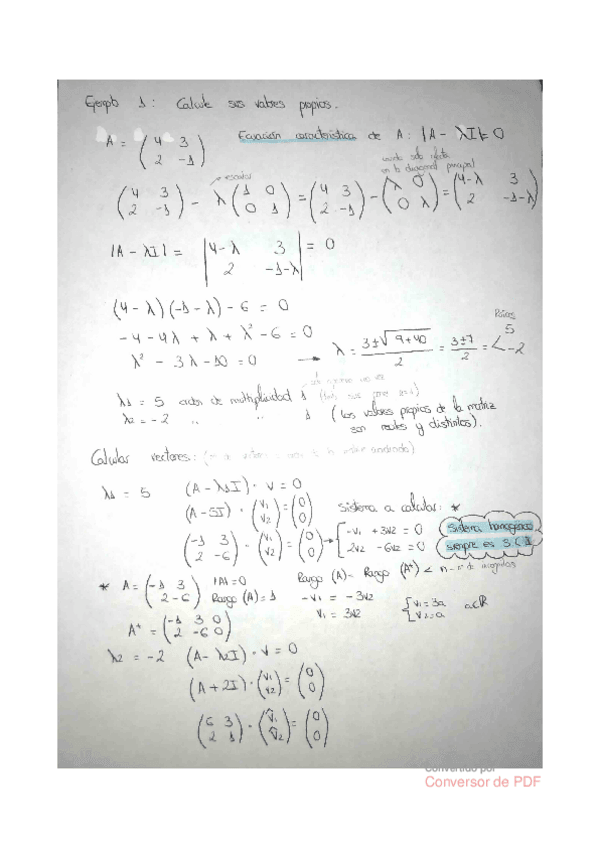 Ejemplo 1: Calcule sus valores propios.
A = (4 3 / 2 -1) Ecuación característica de A: |A - λI| = 0
escalar
cuando solo afecta
en la diagonal principal
(4 3 / 2 -1) - λ(1 0 / 0 1) = (4 3 / 2 -1) - (λ 0 / 0 λ) = (4-λ 3 / 2 -1-λ)
|A - λI| = |4-λ 3 / 2 -1-λ| = 0
(4-λ)(-1-λ) - 6 = 0
-4 - 4λ + λ + λ² - 6 = 0
λ² - 3λ - 10 = 0 → λ = 3±√9+40 / 2 = 3±7 / 2 = < 5 / -2
Raíces
λ1 = 5 orden de multiplicidad 1
λ2 = -2 " " 1 (Los valores propios de la matriz
son reales y distintos).
Calcular vectores:
λ1 = 5 (A - λ1I) · v = 0
(A - 5I) · (v1 / v2) = (0 / 0) Sistema a calcular: *
(-1 3 / 2 -6) · (v1 / v2) = (0 / 0) → { -v1 + 3v2 = 0 / 2v2 - 6v2 = 0 Sistema homogéneo
siempre es S.C.I
* A = (-1 3 / 2 -6) |A| = 0 Rango (A) = Rango (A*) < n - nº de incógnitas
Rango (A) = 1 -v1 = -3v2
v1 = 3v2 { v1 = 3a / v2 = a a∈R
A* = (-1 3 0 / 2 -6 0)
λ2 = -2 (A - λ2I) · v = 0
(A + 2I) · (v1 / v2) = (0 / 0)
(6 3 / 2 1) · (v1 / v2) = (0 / 0)
Convertido por
Conversor de PDF